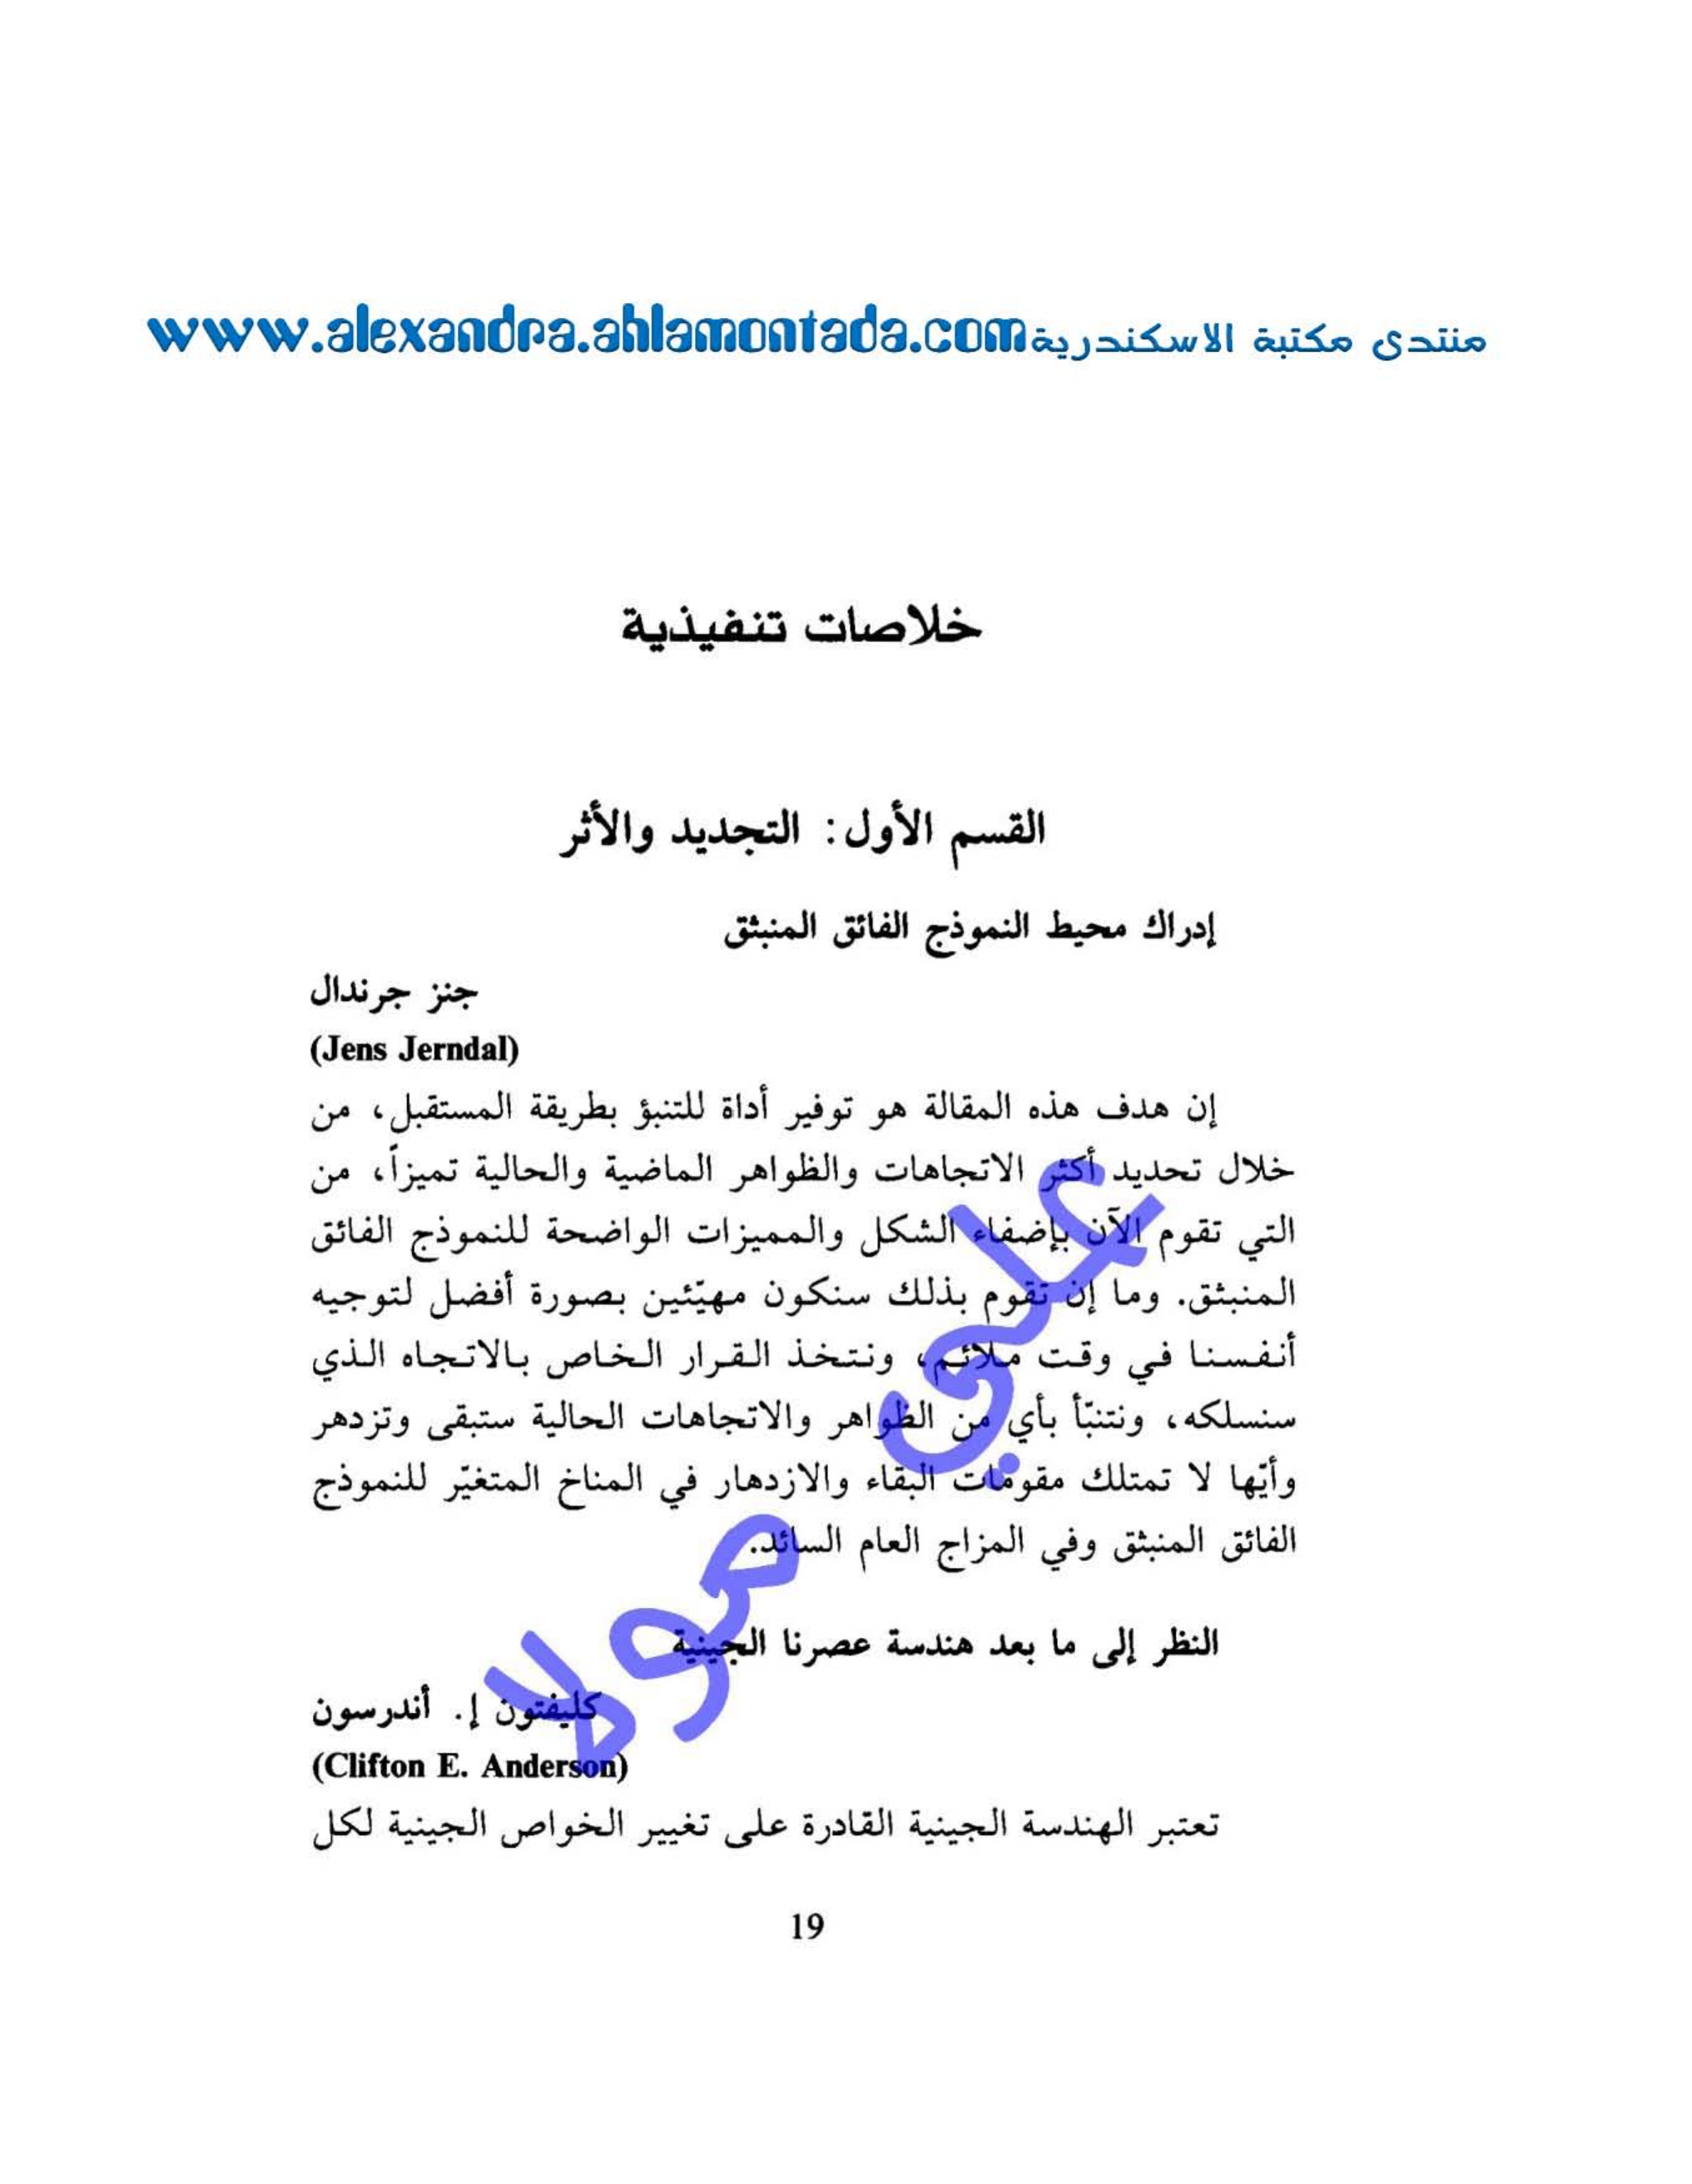 منتدى مكتبة الاسكندرية www.alexandra.ahlamontada.com
خلاصات تنفيذية
القسم الأول: التجديد والأثر
إدراك محيط النموذج الفائق المنبثق
جنز جرندال
(Jens Jerndal)
إن هدف هذه المقالة هو توفير أداة للتنبؤ بطريقة المستقبل، من
خلال تحديد أكثر الاتجاهات والظواهر الماضية والحالية تميزاً، من
التي تقوم الآن بإضفاء الشكل والمميزات الواضحة للنموذج الفائق
المنبثق. وما إن تقوم بذلك سنكون مهيّئين بصورة أفضل لتوجيه
أنفسنا في وقت ملائم، ونتخذ القرار الخاص بالاتجاه الذي
سنسلكه، ونتنبّأ بأي من الظواهر والاتجاهات الحالية ستبقى وتزدهر
وأيّها لا تمتلك مقومات البقاء والازدهار في المناخ المتغيّر للنموذج
الفائق المنبثق وفي المزاج العام السائد.
النظر إلى ما بعد هندسة عصرنا الجينية
كليفتون إ. أندرسون
(Clifton E. Anderson)
تعتبر الهندسة الجينية القادرة على تغيير الخواص الجينية لكل
19
علي مولا